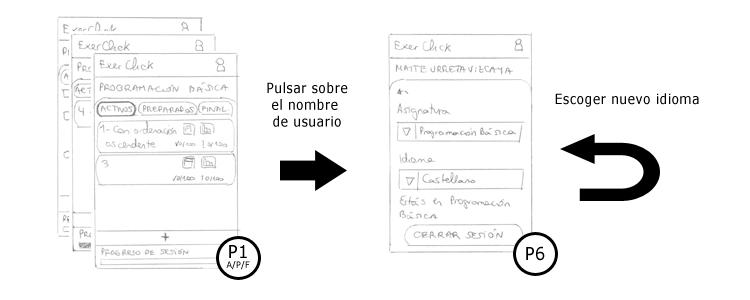 ExerClick
ExerClick
PROGRAMACIÓN BÁSICA
ACTIVOS PREPARADOS FINAL
1- Con ordenación
ascendente 10/100 10/100
3
10/100 10/100
+
PROGRESO DE SESIÓN
P1
A/P/F
Pulsar sobre
el nombre
de usuario
ExerClick
MAITE URRETAVIZCAYA
Asignatura
Programación Básica
Idioma
Castellano
Estás en Programación
Básica
CERRAR SESIÓN
P6
Escoger nuevo idioma